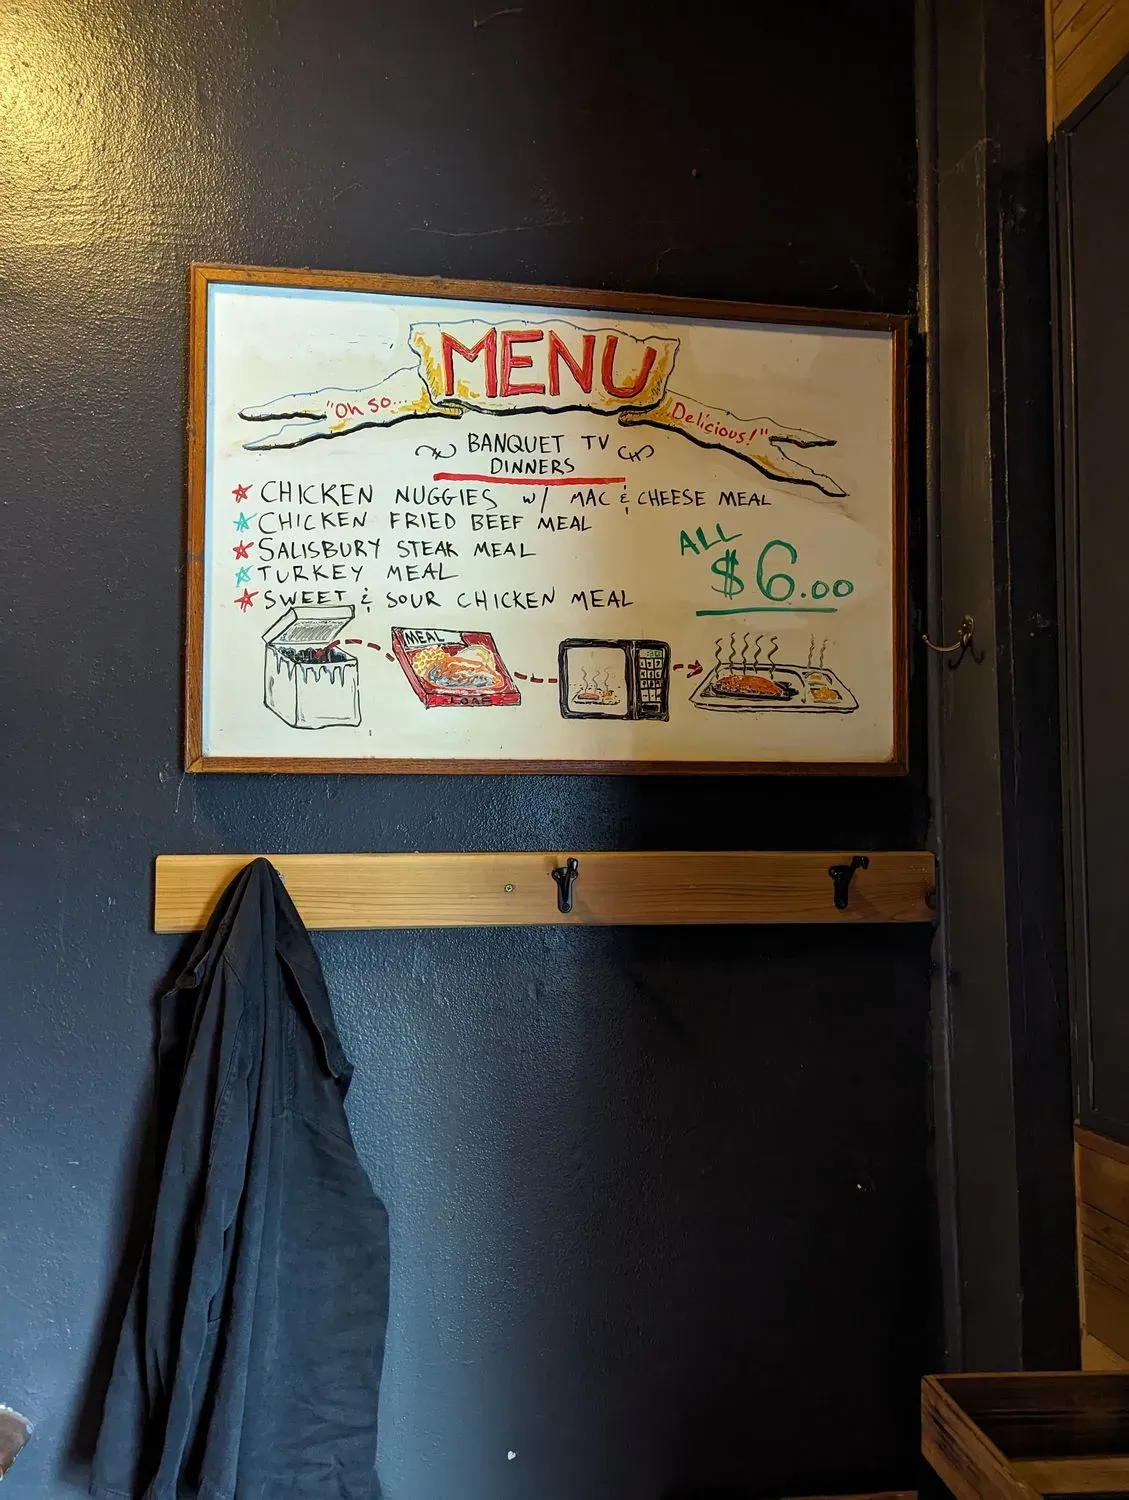 MENU
"Oh so... Delicious!"
BANQUET TV
DINNERS
CHICKEN NUGGIES w/ MAC & CHEESE MEAL
CHICKEN FRIED BEEF MEAL
SALISBURY STEAK MEAL
TURKEY MEAL
SWEET & SOUR CHICKEN MEAL
ALL
$6.00
MEAL
LOAF